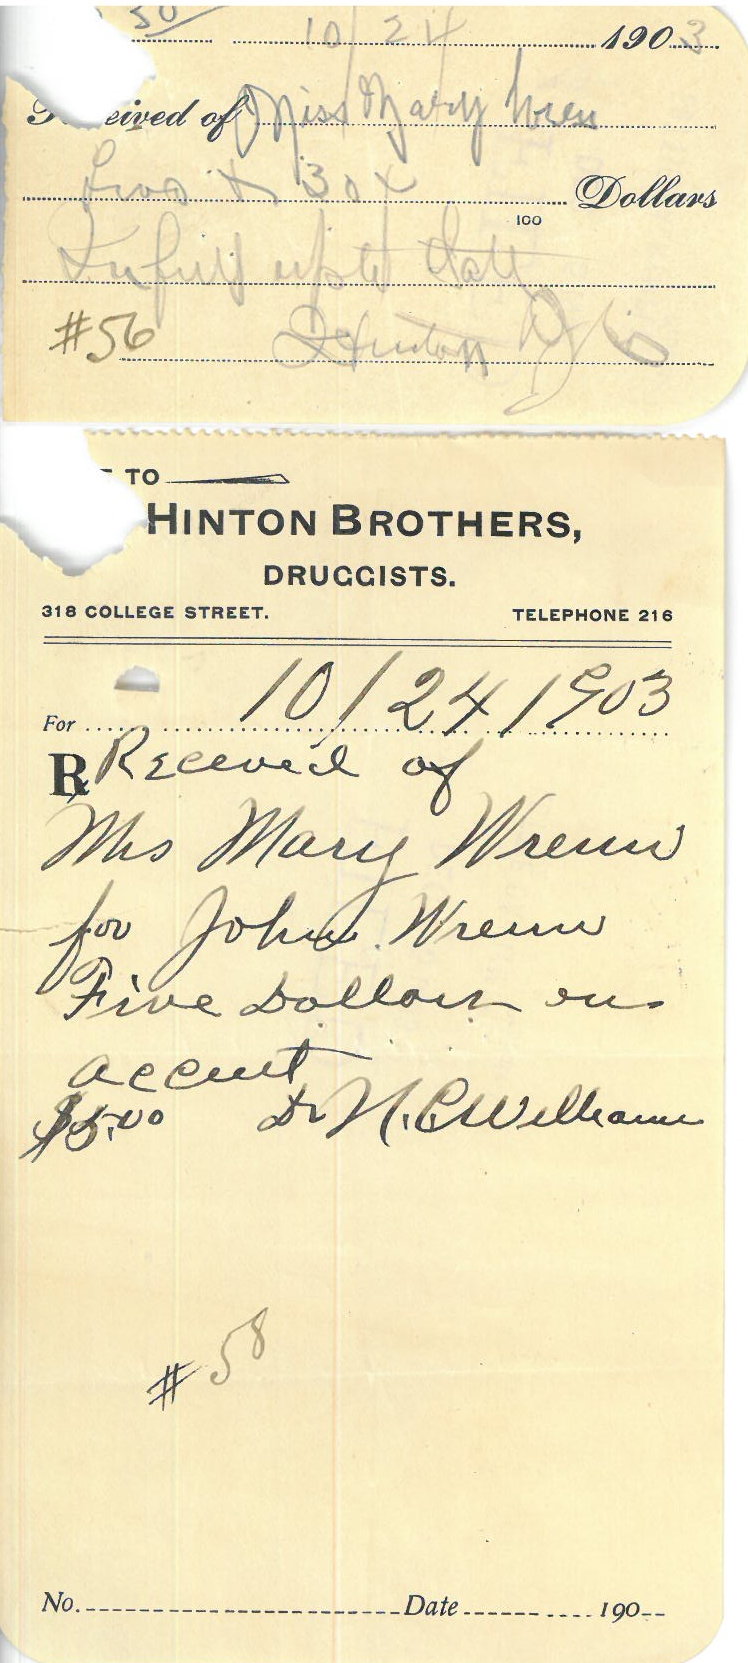 50 10/24 1903
Received of Miss Mary Wren
Two & 30x Dollars
100
In full up to date
#56 Hinton
TO
HINTON BROTHERS,
DRUGGISTS.
318 COLLEGE STREET. TELEPHONE 216
For 10/24/1903
R Received of
Mrs Mary Wrenn
for John Wrenn
Five Dollars on
accunt
$5.00 Dr N.C. Williams
#58
No. Date 190